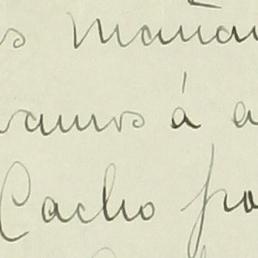 s mañan
vamos á a
Cacho po